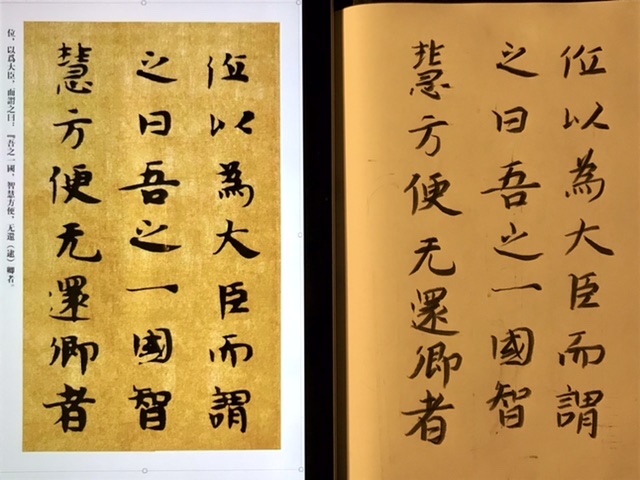 位以為大臣而謂
之曰吾之一國智
慧方便无還卿者
位，以爲大臣，而謂之曰：『吾之一國，智慧方便，无還（逮）卿者。
位以為大臣而謂
之曰吾之一國智
慧方便无還卿者